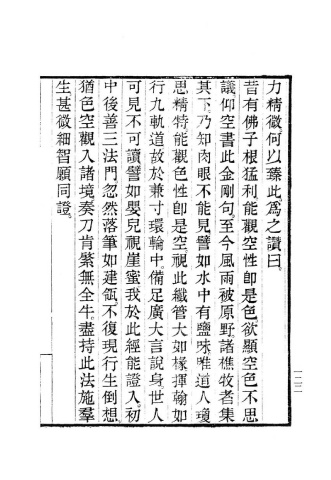 力精微何以臻此爲之讚曰
昔有佛子根猛利能觀空性卽是色欲顯空色不思
議仰空書此金剛句至今風雨被原野諸樵牧者集
其下乃知肉眼不能見譬如水中有鹽味唯道人瓊
思精特能觀色性卽是空視此纖管大如椽揮翰如
行九軌道故於兼寸環輪中備足廣大言說身世人
可見不可讀譬如嬰兒視崖蜜我於此經能證入初
中後善三法門忽然落筆如建瓴不復現行生倒想
猶色空觀入諸境奏刀肯綮無全牛盡持此法施羣
生甚微細智願同證